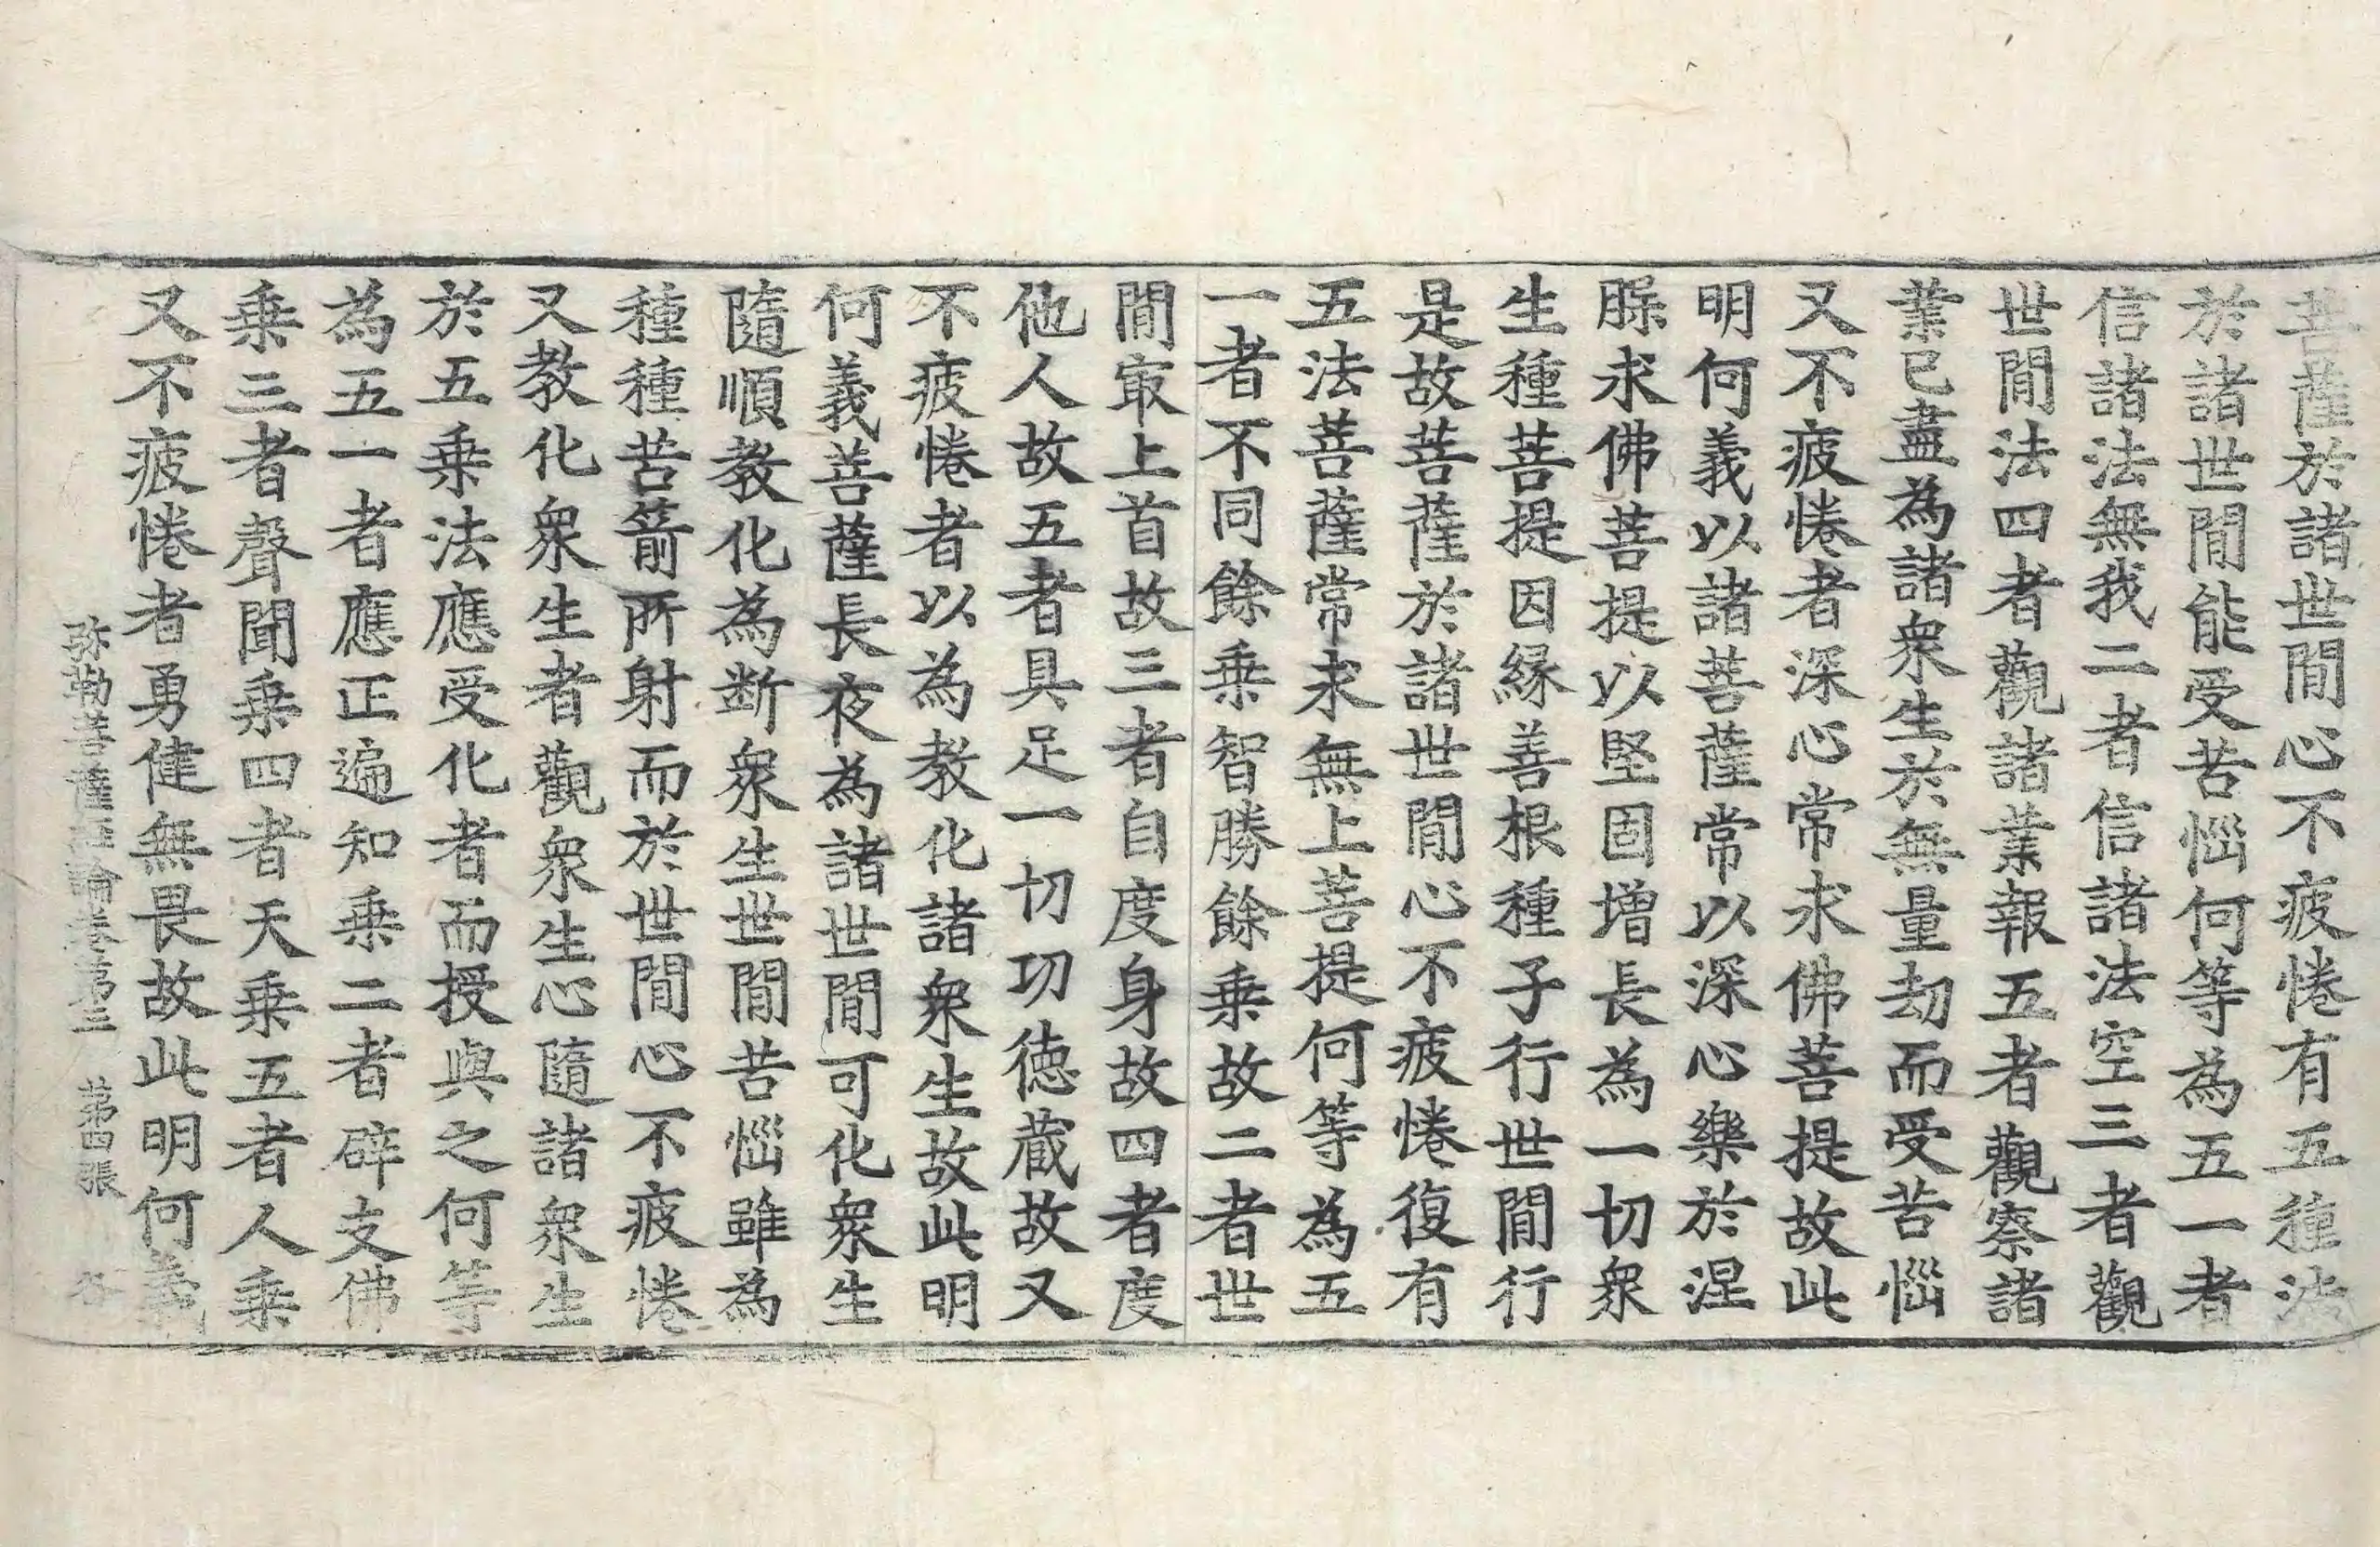 菩薩於諸世間心不疲惓有五種法
於諸世間能受苦惱何等為五一者
信諸法無我二者信諸法空三者觀
世間法四者觀諸業報五者觀察諸
業已盡為諸衆生於無量劫而受苦惱
又不疲惓者深心常求佛菩提故此
明何義以諸菩薩常以深心樂於涅
槃求佛菩提以堅固增長為一切衆
生種菩提因緣善根種子行世間行
是故菩薩於諸世間心不疲惓復有
五法菩薩常求無上菩提何等為五
一者不同餘乗智勝餘乗故二者世
間㝡上首故三者自度身故四者度
他人故五者具足一切功德藏故又
不疲惓者以為教化諸衆生故此明
何義菩薩長夜為諸世間可化衆生
隨順教化為断衆生世間苦惱雖為
種種苦箭所射而於世間心不疲惓
又教化衆生者觀衆生心隨諸衆生
於五乗法應受化者而授與之何等
為五一者應正遍知乗二者辟支佛
乗三者聲聞乗四者天乗五者人乗
又不疲惓者勇健無畏故此明何義
弥勒菩薩經論卷第三　第四張